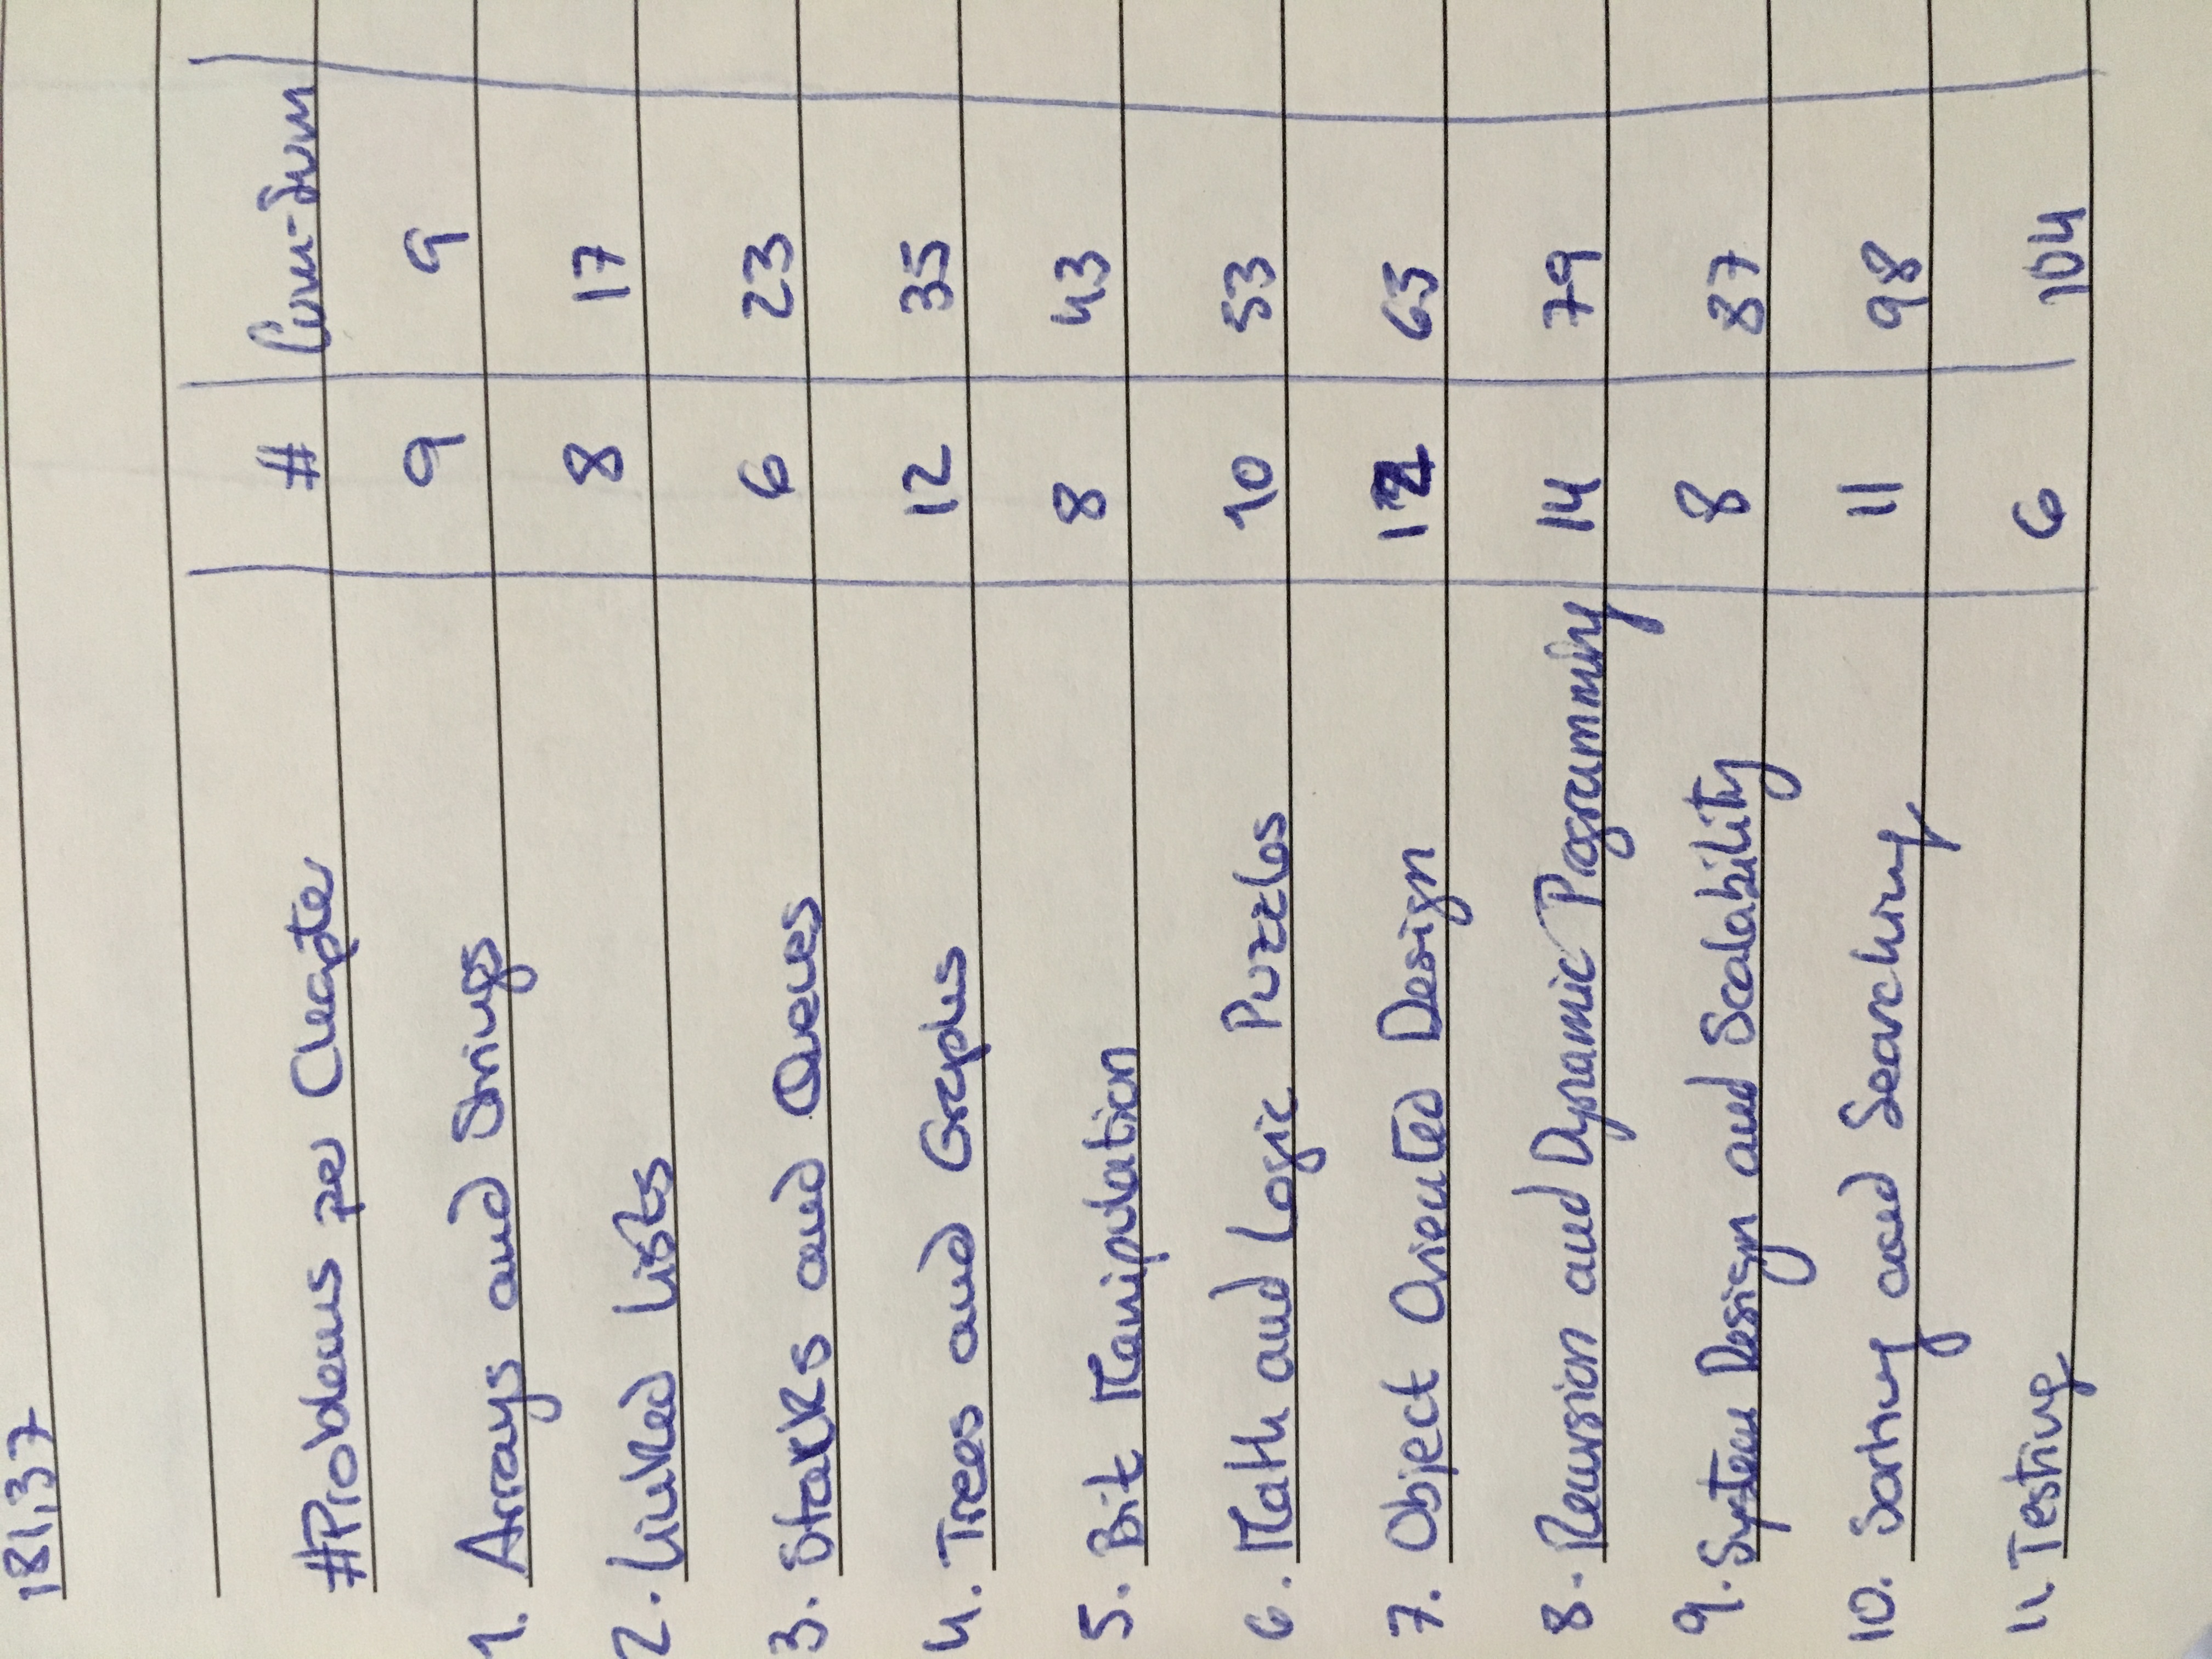 181,37
#Problems per Chapter # Cum-Sum
1. Arrays and Strings 9 9
2. Linked Lists 8 17
3. Stacks and Queues 6 23
4. Trees and Graphs 12 35
5. Bit Manipulation 8 43
6. Math and Logic Puzzles 10 53
7. Object Oriented Design 12 65
8. Recursion and Dynamic Programming 14 79
9. System Design and Scalability 8 87
10. Sorting and Searching 11 98
11. Testing 6 104